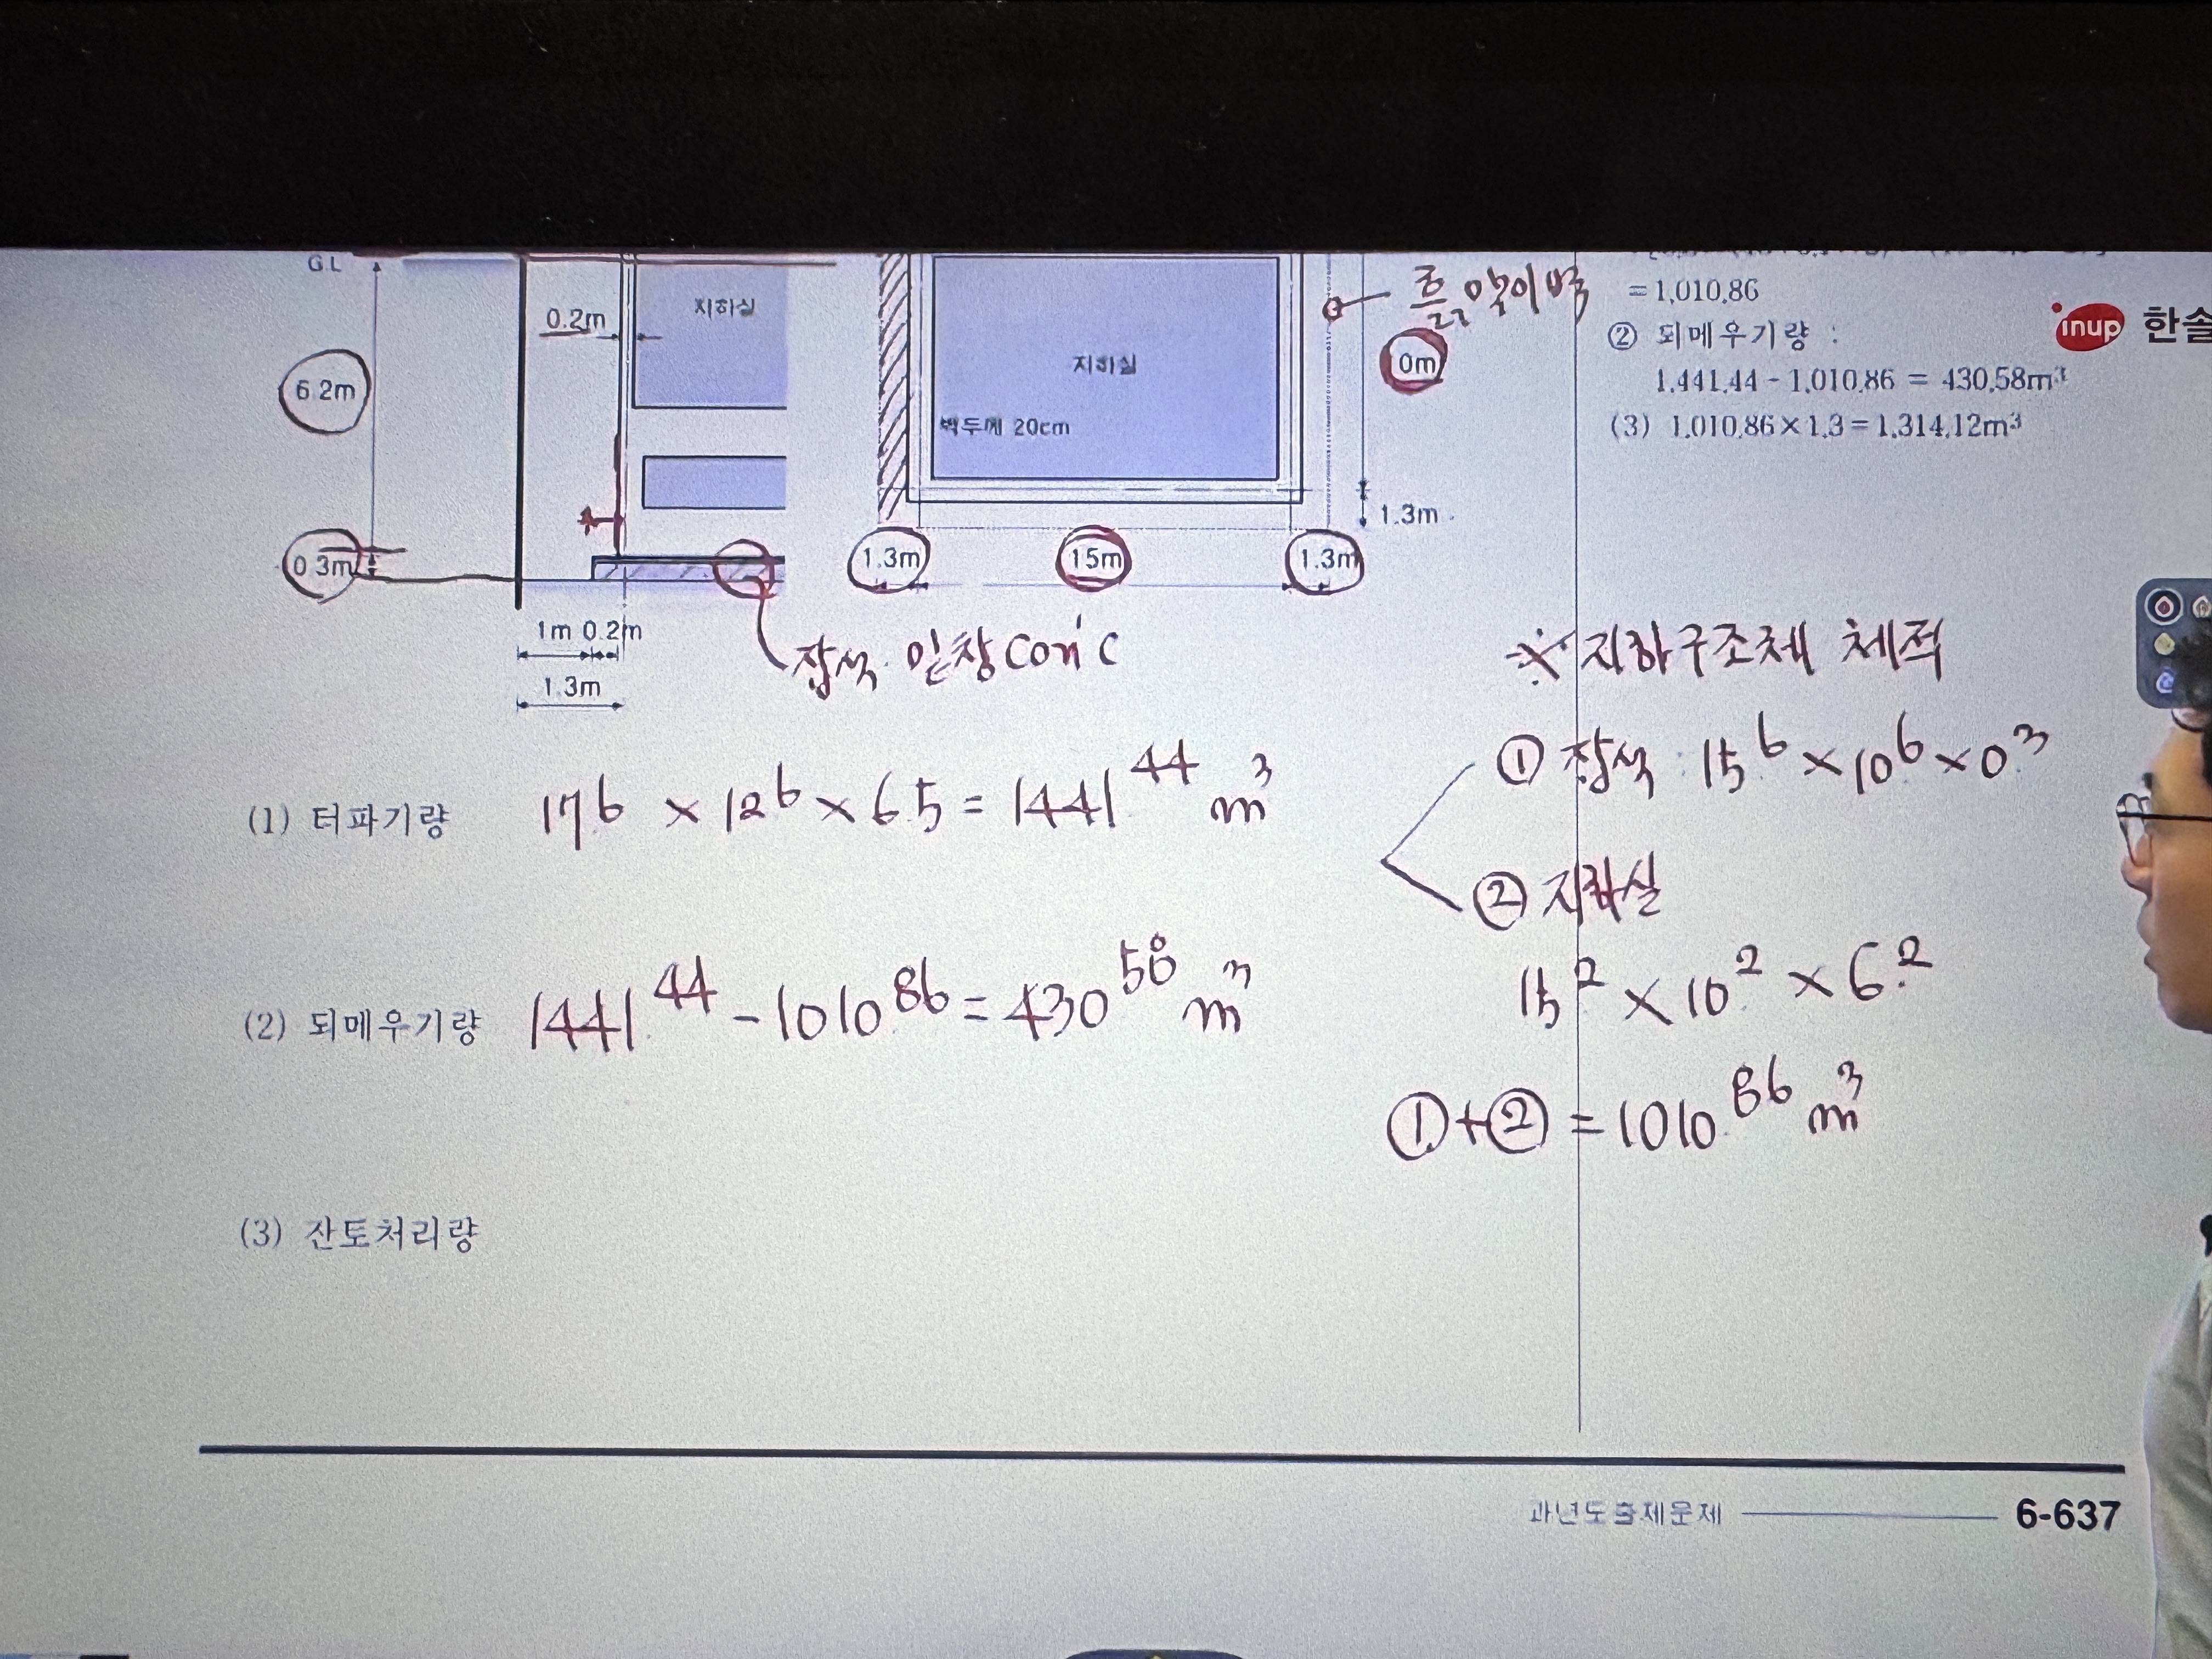 G.L
지하실
0.2m
6.2m
0.3m
1m 0.2m
1.3m
잡석. 밑창 con'c
지하실
벽두께 20cm
흙막이벽
0m
1.3m
1.3m
15m
1.3m
=1,010.86
② 되메우기량 :
1,441.44 - 1,010.86 = 430.58m³
(3) 1,010.86×1.3=1,314.12m³
inup 한솔
(1) 터파기량 17.6 × 12.6 × 6.5 = 1441.44 m³
(2) 되메우기량 1441.44 - 1010.86 = 430.58 m³
(3) 잔토처리량
※ 지하구조체 체적
① 잡석 : 15.6 × 10.6 × 0.3
② 지하실
15.2 × 10.2 × 6.2
①+② = 1010.86 m³
과년도출제문제 6-637